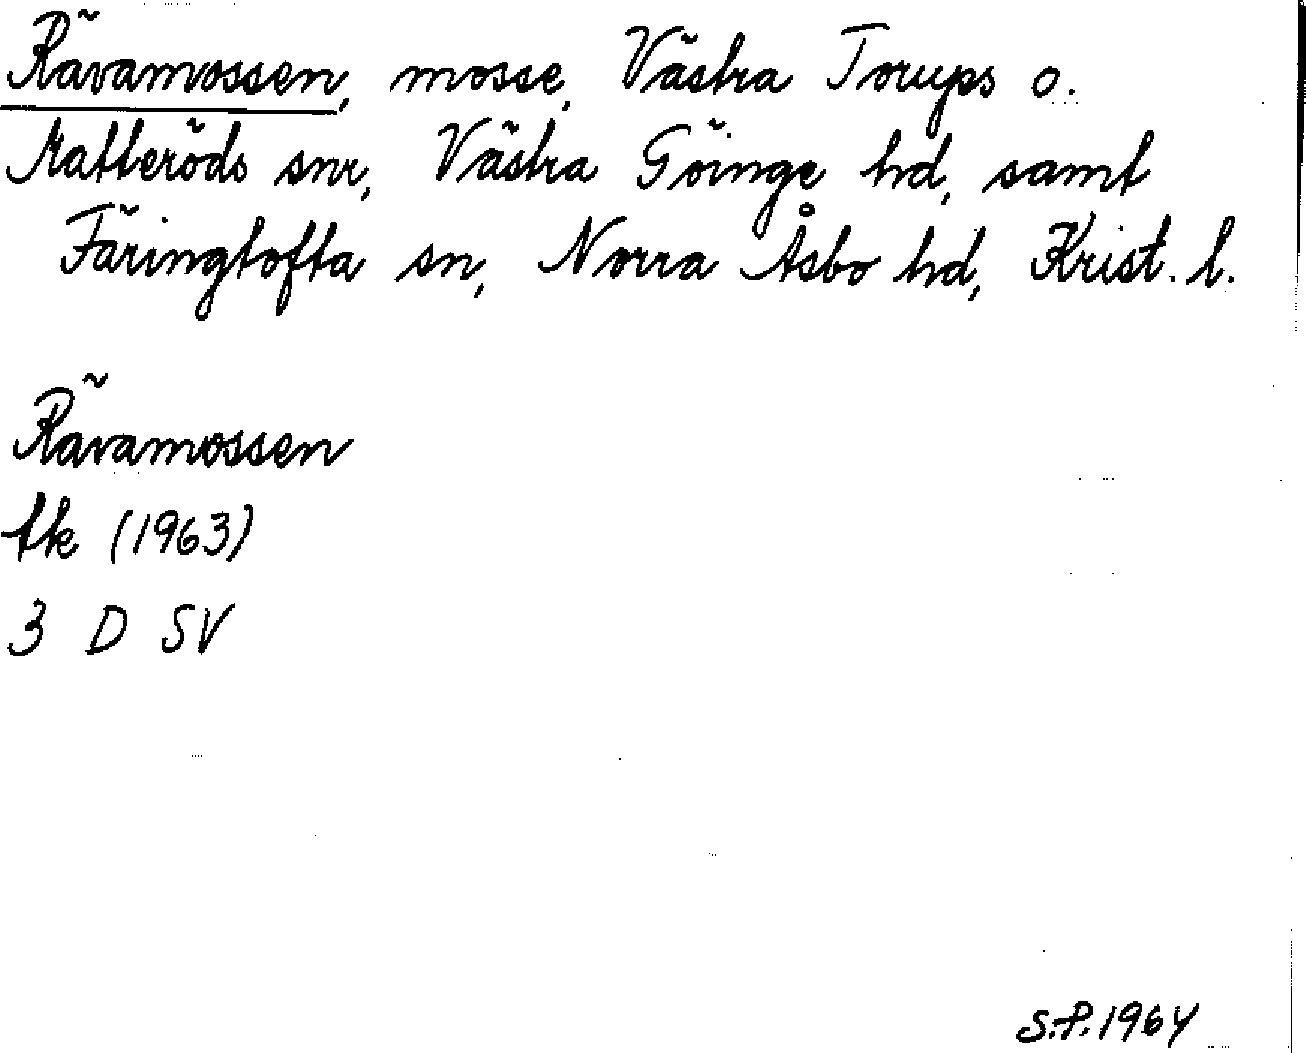 Rävamossen, mosse, Västra Torups o.
Matteröds snr, Västra Göinge hd, samt
Färingtofta sn, Norra Åsbo hd, Krist. l.
Rävamossen
tk (1963)
3 D SV
S.P. 1964